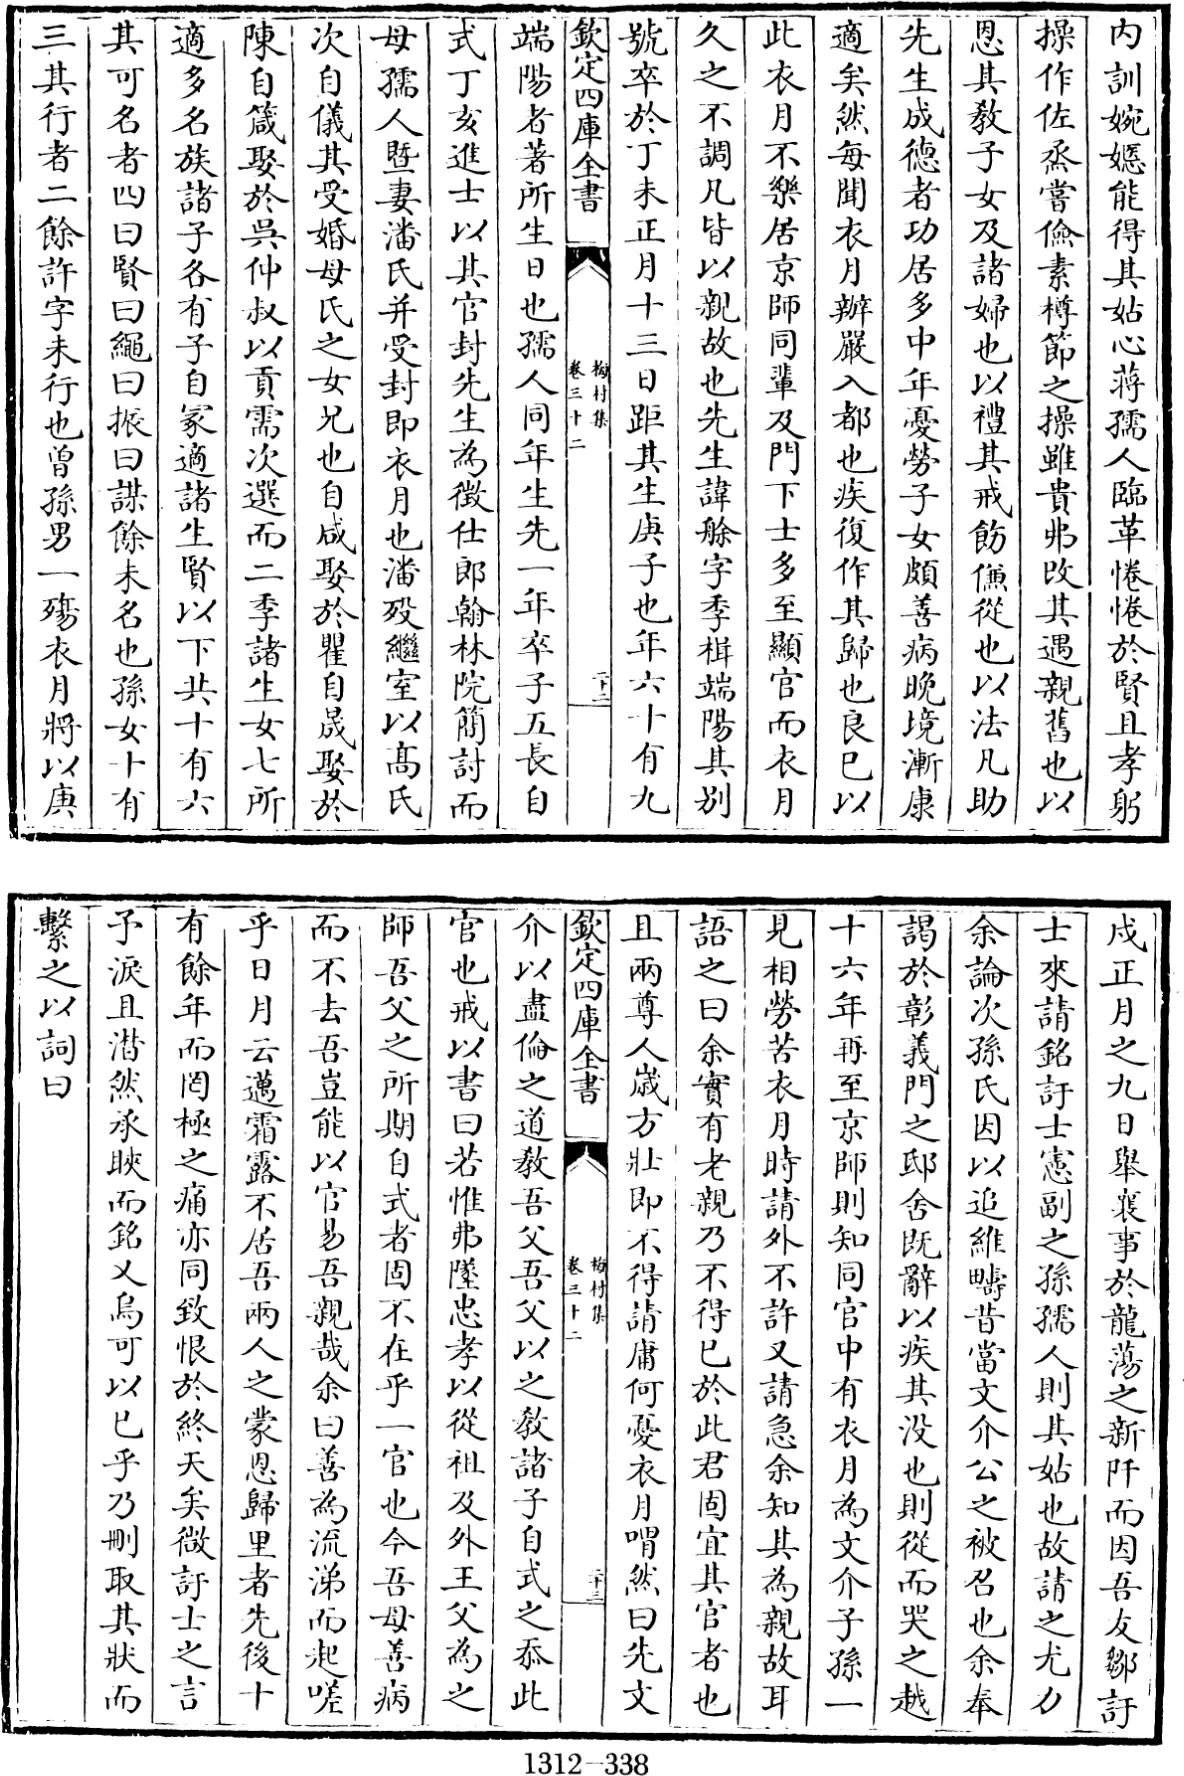 內訓婉嫕能得其姑心蔣孺人臨革惓惓於賢且孝躬
操作佐烝嘗儉素樽節之操雖貴弗改其遇親舊也以
恩其教子女及諸婦也以禮其戒飭傔從也以法凡助
先生成德者功居多中年憂勞子女頗善病晚境漸康
適矣然每聞衣月辦嚴入都也疾復作其歸也良已以
此衣月不樂居京師同輩及門下士多至顯官而衣月
久之不調凡皆以親故也先生諱艅字季楫端陽其別
號卒於丁未正月十三日距其生庚子也年六十有九
欽定四庫全書
梅村集
卷三十二
二十二
端陽者著所生日也孺人同年生先一年卒子五長自
式丁亥進士以其官封先生為徵仕郎翰林院簡討而
母孺人暨妻潘氏并受封即衣月也潘歿繼室以高氏
次自儀其受婚母氏之女兄也自咸娶於瞿自晟娶於
陳自箴娶於吳仲叔以貢需次選而二季諸生女七所
適多名族諸子各有子自冢適諸生賢以下共十有六
其可名者四曰賢曰繩曰振曰謀餘未名也孫女十有
三其行者二餘許字未行也曾孫男一殤衣月將以庚
戌正月之九日舉襄事於龍蕩之新阡而因吾友鄒訏
士來請銘訏士憲副之孫孺人則其姑也故請之尤力
余論次孫氏因以追維疇昔當文介公之被召也余奉
謁於彰義門之邸舍既辭以疾其沒也則從而哭之越
十六年再至京師則知同官中有衣月為文介子孫一
見相勞苦衣月時請外不許又請急余知其為親故耳
語之曰余實有老親乃不得已於此君固宜其官者也
且兩尊人歲方壯即不得請庸何憂衣月喟然曰先文
欽定四庫全書
梅村集
卷三十二
二十三
介以盡倫之道教吾父吾父以之教諸子自式之忝此
官也戒以書曰若惟弗墜忠孝以從祖及外王父為之
師吾父之所期自式者固不在乎一官也今吾母善病
而不去吾豈能以官易吾親哉余曰善為流涕而起嗟
乎日月云邁霜露不居吾兩人之蒙恩歸里者先後十
有餘年而罔極之痛亦同致恨於終天矣微訏士之言
予淚且潸然承睫而銘又烏可以已乎乃刪取其狀而
繫之以詞曰
1312-338